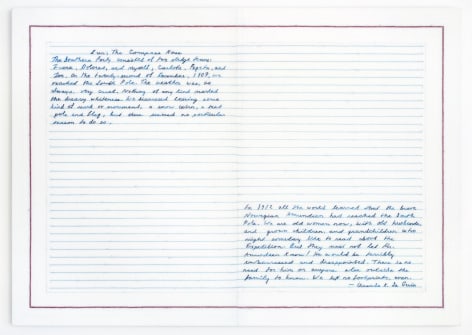 Sur, The Compass Rose
The Southern Party consisted of two sledge crews:
Juana, Dolores, and myself, Carlota, Pepita, and
Zoe. On the twenty-second of December, 1909, we
reached the South Pole. The weather was, as
always, very cruel. Nothing of any kind marked
the dreary whiteness. We discussed leaving some
kind of mark or monument, a snow cairn, a tent
pole and flag; but there seemed no particular
reason to do so.
In 1912 all the world learned that the brave
Norwegian Amundsen had reached the South
Pole. We are old women now, with old husbands,
and grown children, and grandchildren who
might someday like to read about the
Expedition. But they must not let Mr.
Amundsen know! He would be terribly
embarrassed and disappointed. There is no
need for him or anyone else outside the
family to know. We left no footprints, even.
— Ursula K. Le Guin